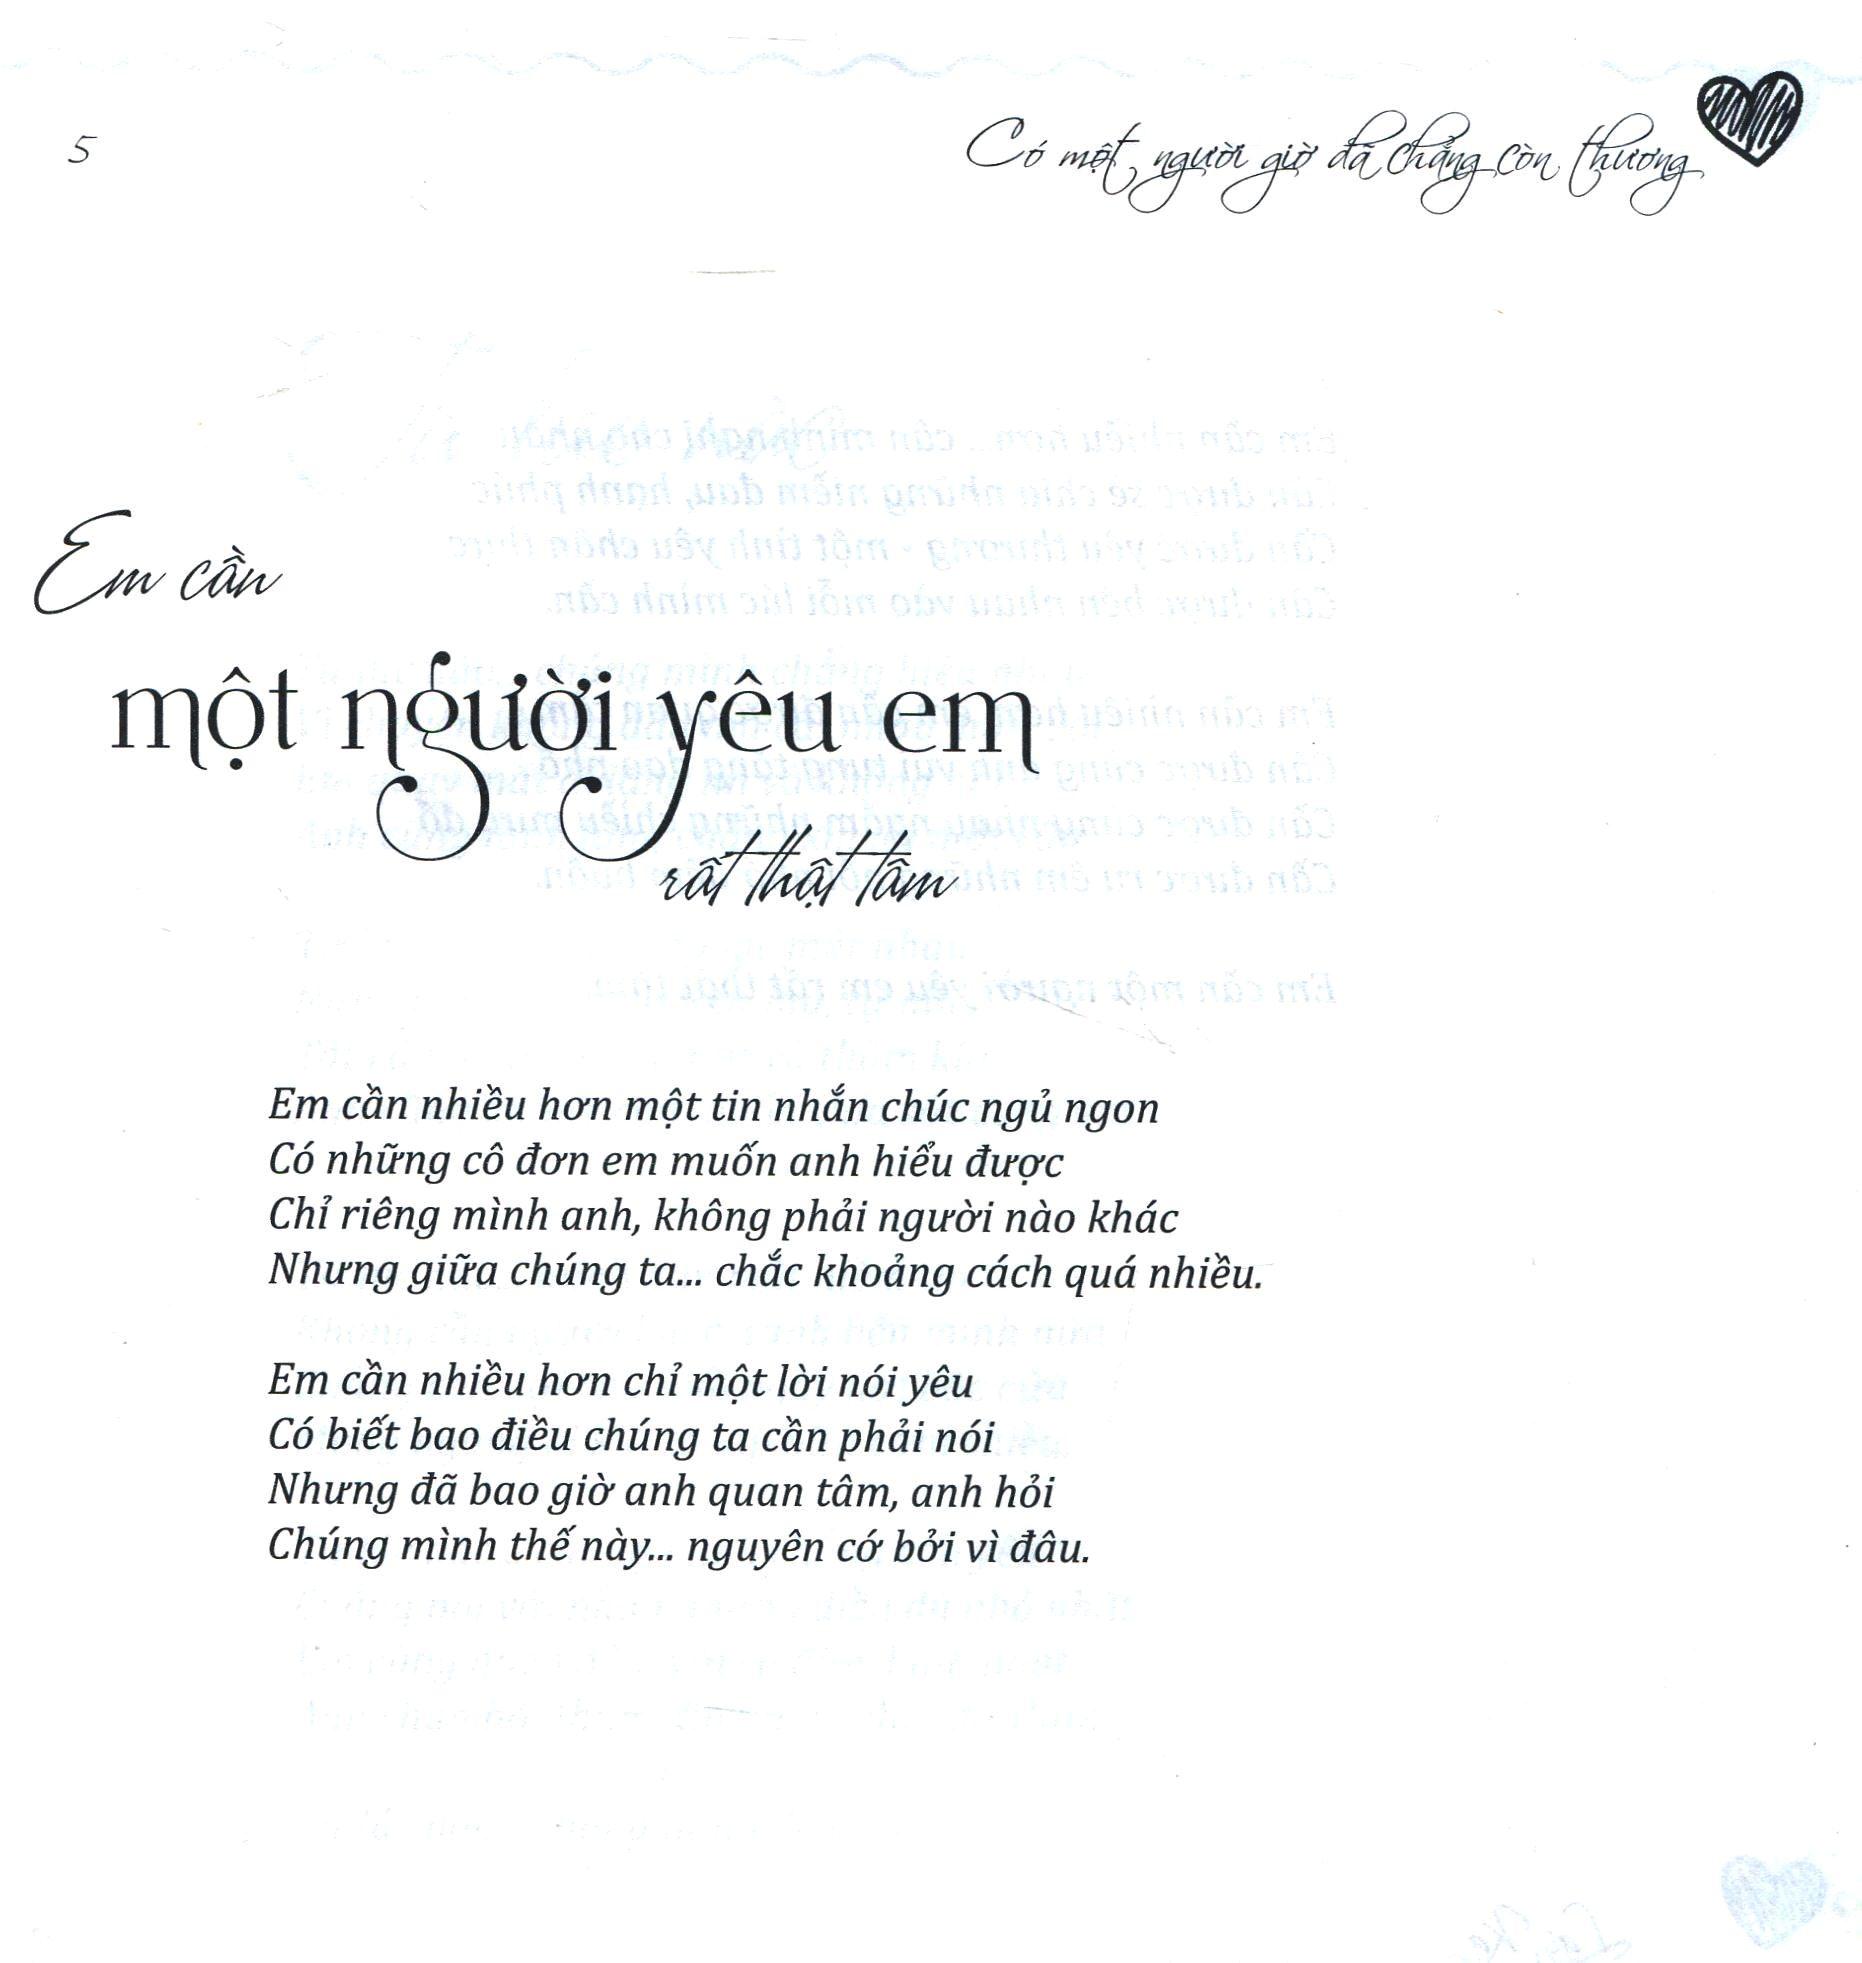 5
Có một người giờ đã chẳng còn thương
Em cần
một người yêu em
rất thật tâm
Em cần nhiều hơn một tin nhắn chúc ngủ ngon
Có những cô đơn em muốn anh hiểu được
Chỉ riêng mình anh, không phải người nào khác
Nhưng giữa chúng ta... chắc khoảng cách quá nhiều.
Em cần nhiều hơn chỉ một lời nói yêu
Có biết bao điều chúng ta cần phải nói
Nhưng đã bao giờ anh quan tâm, anh hỏi
Chúng mình thế này... nguyên cớ bởi vì đâu.